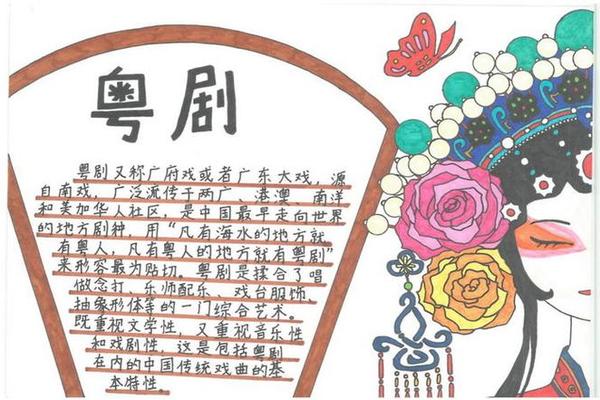 粤剧
粤剧又称广府戏或者广东大戏，源
自南戏，广泛流传于两广、港澳、南洋
和美加华人社区，是中国最早走向世界
的地方剧种，用“凡有海水的地方就
有粤人，凡有粤人的地方就有粤剧”
来形容最为贴切。粤剧是揉合了唱
做念打、乐师配乐、戏台服饰、
抽象形体等的一门综合艺术。
既重视文学性，又重视音乐性
和戏剧性，这是包括粤剧
在内的中国传统戏曲的基
本特性。